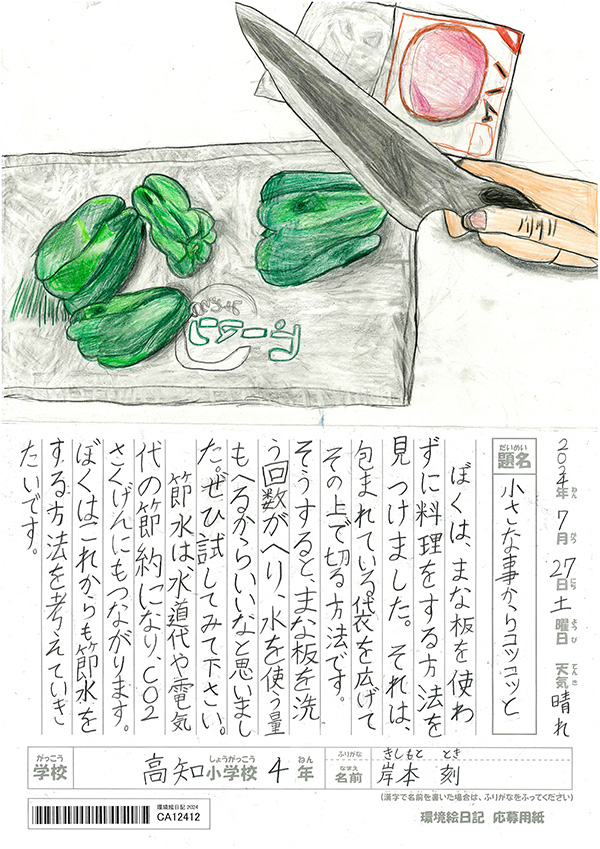 ハム
ピーマン
2024年 7月 27日 土曜日 天気 晴れ
ねん がつ にち ようび てんき
だいめい
題名 小さな事からコツコツと
ぼくは、まな板を使わ
ずに料理をする方法を
見つけました。それは、
包まれている袋を広げて
その上で切る方法です。
そうすると、まな板を洗
う回数がへり、水を使う量
もへるからいいなと思いまし
た。ぜひ試してみて下さい。
節水は、水道代や電気
代の節約になり、CO2
さくげんにもつながります。
ぼくはこれからも節水を
する方法を考えていき
たいです。
がっこう しょうがっこう ねん
学校 高知小学校 4年
ふりがな きしもと とき
なまえ
名前 岸本 刻
(漢字で名前を書いた場合は、ふりがなをふってください)
環境絵日記 2024
CA12412
環境絵日記 応募用紙